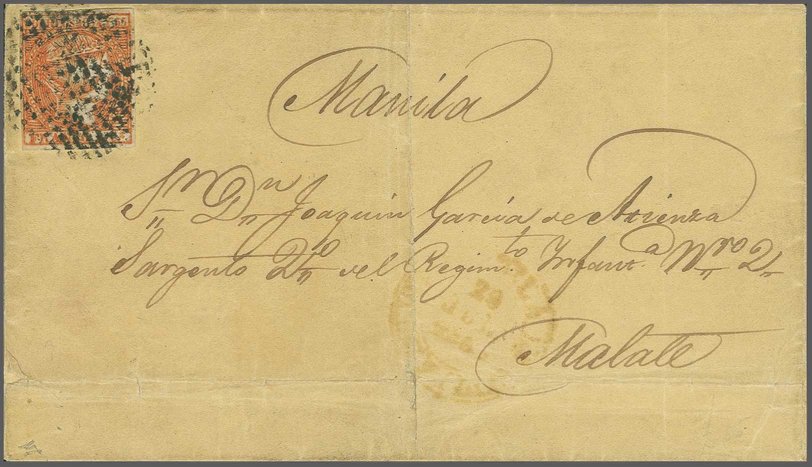 Manila
Sr. Dn. Joaquin Garcia de Arienza
Sargento 2º del Regim.to Infant.a Nro. 2
Malate